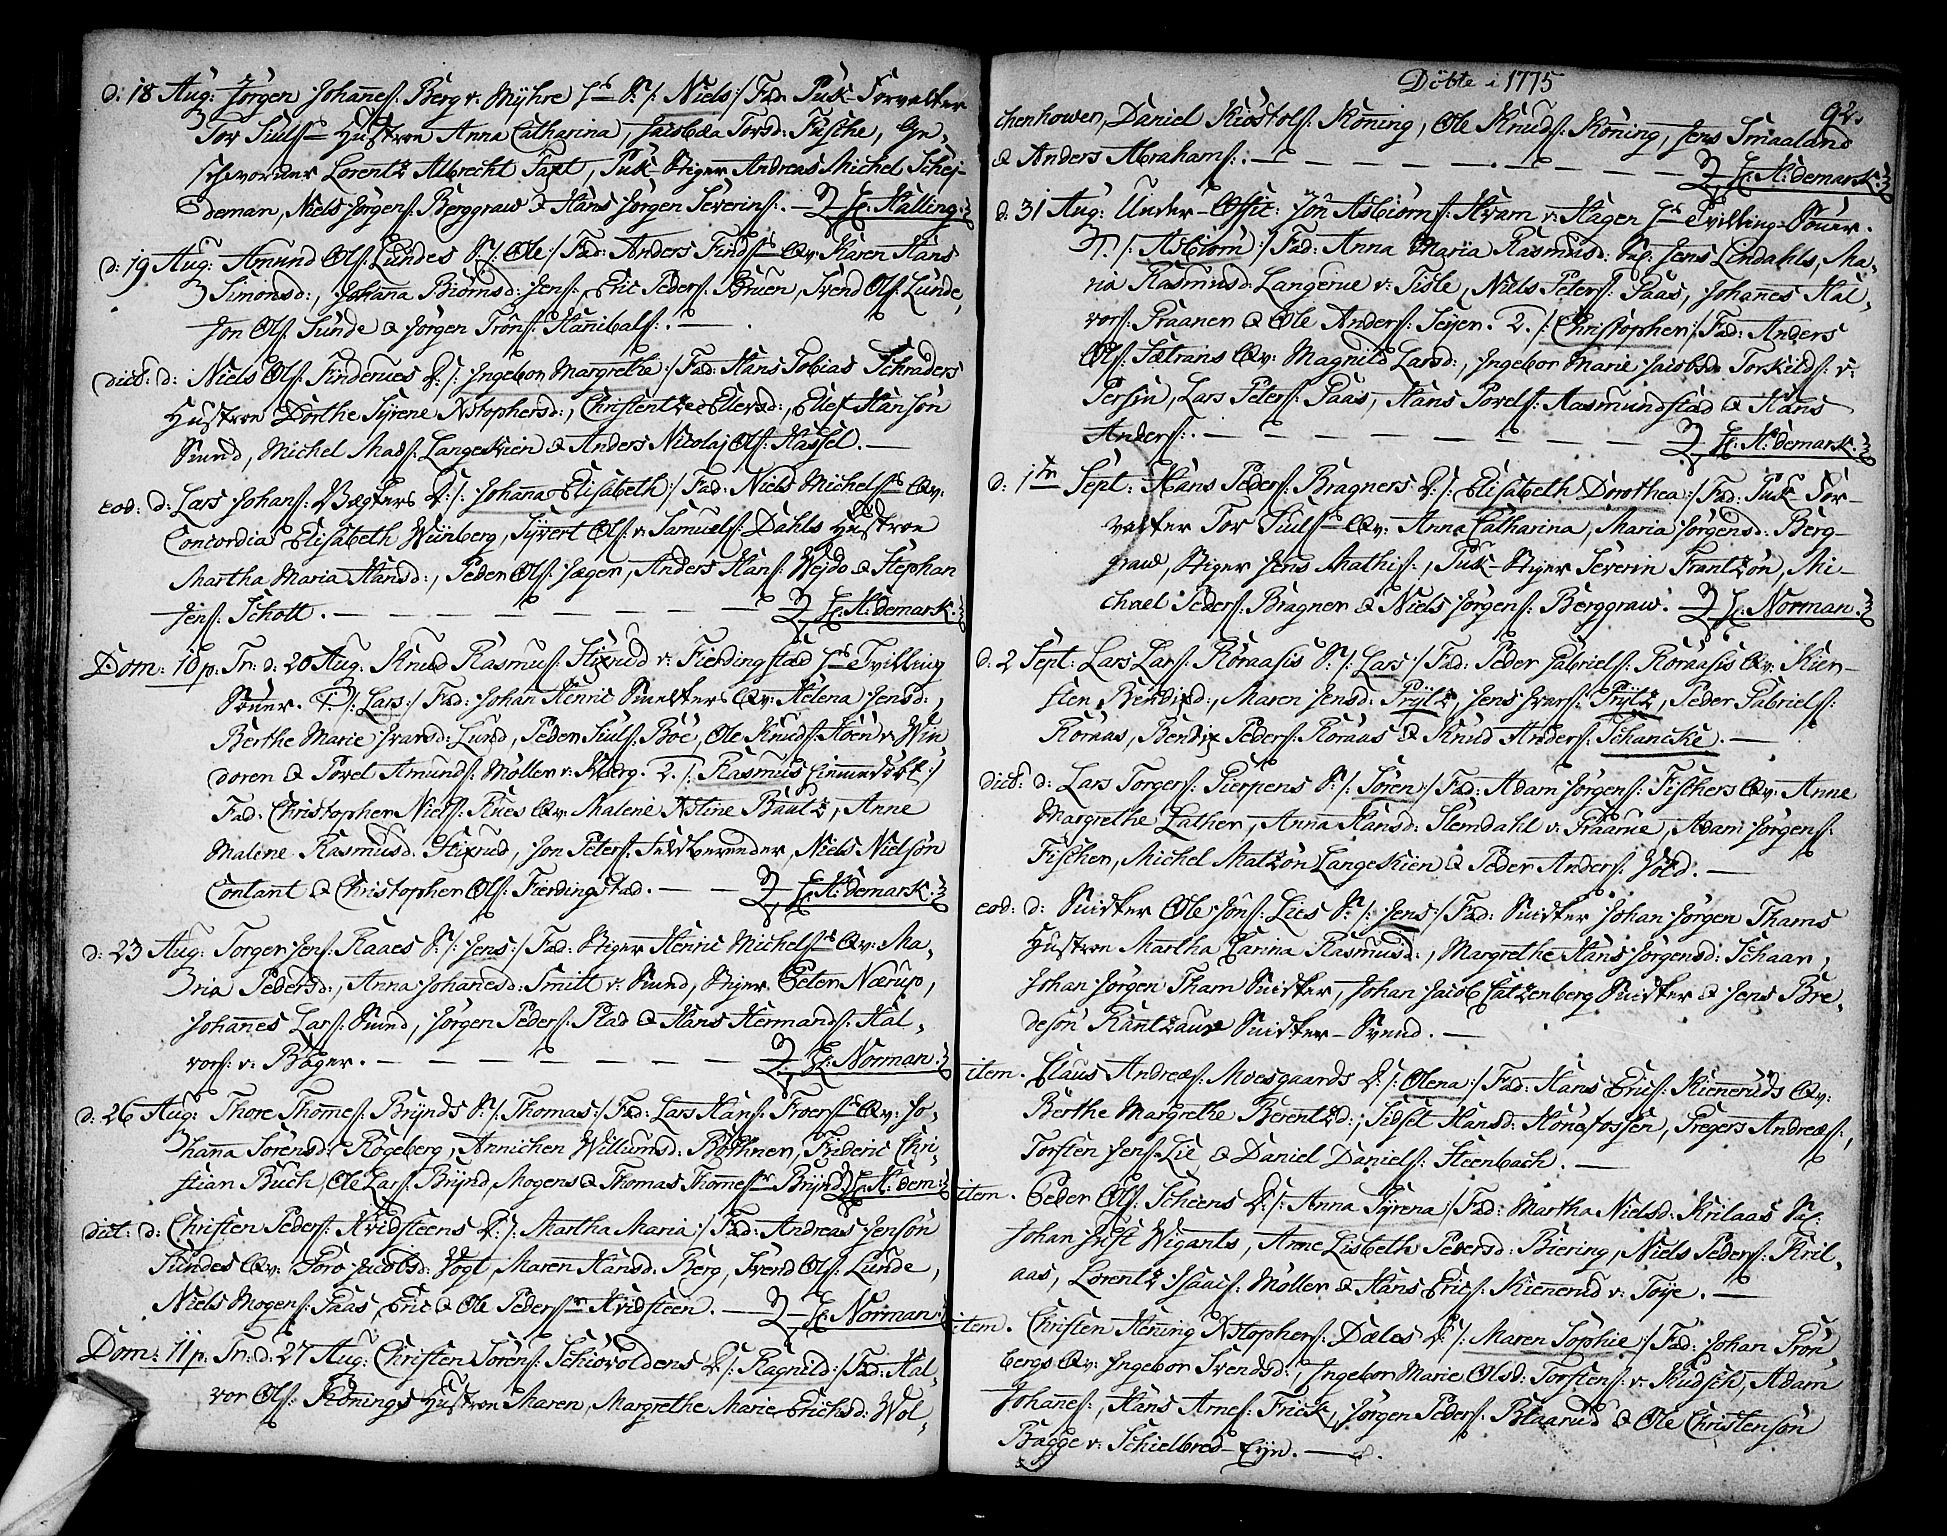 d: 18 Aug: Jørgen Johannes: Berg v. Myhre S: /: Niels :/ Fad: Forvalter
Tor Juuls Hustroe Anna Catharina, Jacobæa Torsd: Fusche, Ge-
schworner Lorentz Albrecht Taxt, Stiger Andreas Michel Schej-
deman, Niels Jørgens: Berggraw & Hans Jørgen Severins: — H: Halling.
d: 19 Aug: Amund Ols: Lundes S: /: Ole :/ Fad: Anders Finds Qv: Karen Hans
Simonsd:, Johanna Biörnsd: Jens:, Eric Peders: Bruen, Svend Ols: Lunde,
Jon Ols: Sunde & Jörgen Trons: Hannibals: —
dict: d: Niels Ols: D: /: Ingebor Margrethe :/ Fad: Hans Tobias Schraders
Hustroe Dorthe Syrene Xstophersd:, Christentze Ellersd:, Ellef Hansøn
Sund, Michel Mads: Langeskien & Anders Nicolaj Ols: Hassel. —
eod: d: Lars Johans: D: /: Johanna Elisabeth :/ Fad: Niels Michels: Qv:
Concordia Elisabeth Wünberg, Syvert Ols: v: Samuels: Dahls Hustroe
Martha Maria Hansd:, Peder Ols: Jæger, Anders Hans: Wejdo & Stephan
Jens: Schott. — — — — H: Hdemark.
Dom: 10 p: Tr: d: 20 Aug: Knud Rasmus: Stixrud v: Fierdingstad Tvilling
Sönner. 1. /: Lars :/ Fad: Johan Henric Smelters Qv: Helena Jensd:,
Berthe Marie Ivarsd: Lund, Peder Juuls: Böe, Ole Knuds: Hoen v: Win
doren & Povel Amunds: Möller v: Kberg. 2. /: Rasmus :/
Fad: Christopher Niels: Rues Qv: Malene Xstine Bautz, Anne
Malene Rasmusd. Stixrud, Jon Peters: Feldbereder, Niels Nielsön
Contant & Christopher Ols: Fierdingstad. — — H: Hdemark.
d: 23 Aug: Torger Jens: Raaes S: /: Jens :/ Fad: Stiger Henric Michels Qv: Ma-
ria Pedersd:, Anna Johanesd: Smitt v: Sund, Stiger Peter Nærup,
Johannes Lars: Sund, Jörgen Peders: Stad & Hans Hermands: Hal-
vors: v: Böger. — — — — H: Norman.
d: 26 Aug: Thore Thomes: Brynds S: /: Thomas :/ Fad: Lars Hans: Qv: Jo-
hanna Sörensd: Rögeberg, Annichen Willumsd: Böthner, Frideric Chri-
stian Buch, Ole Lars: Brynd, Mogens & Thomas Thomes: Brynd. H: Hdem:
dict: d: Christen Peders: Hvidsteens D: /: Martha Maria :/ Fad: Andreas Jensön
Sundes Qv: Toro Jacobsd: Vogt, Maren Hansd: Berg, Svend Ols: Lunde,
Niels Mogens: Paas, Eric & Ole Peders: Hvidsteen. — H: Norman.
Dom: 11 p: Tr: d: 27 Aug: Christen Sörens: Schiövoldens D: /: Ragnild :/ Fad: Hal-
vor Ols: Königs Hustroe Maren, Margrethe Marie Erichsd: Wol-
Döbte i 1775
92.
chenhower, Daniel Kiöstols: Köning, Ole Knuds: Köning, Jens Smaaland
& Anders Abrahams: — — — — H: Hdemark.
d: 31 Aug: Under-Offic: Jon Asbiörns: Hvam v: Hagen Tvilling-Sönner.
1. /: Asbiörn :/ Fad: Anna Maria Rasmusd: Jens Lindahls, Ma-
ria Rasmusd: Langerue v: Fisle, Niels Peters: Paas, Johannes Hal-
vors: Praaner & Ole Anders: Sejer. 2. /: Christopher :/ Fad: Anders
Ols: Sætrans Qv: Magnild Larsd:, Ingebor Marie Jacobsd: Torskilds: v:
Lars Peters: Paas, Hans Povels: Aasmundstad & Hans
Anders: — — — — H: Hdemark.
d: 1ste Sept: Hans Peders: Bragners D: /: Elisabeth Dorothea :/ Fad: For-
valter Tor Juuls Qv: Anna Catharina, Maria Jörgensd: Berg-
graw, Stiger Jens Mathis:, Stiger Severin Frantzön, Mi-
chael Peders: Bragner & Niels Jörgens: Berggraw. — H: Norman.
d: 2 Sept: Lars Lars: Röraasis S: /: Lars :/ Fad: Peder Gabriels: Röraasis Qv: Kier-
sten Bendixd:, Maren Jensd: Prytz, Jens Ivars: Prytz, Peder Gabriels:
Röraas, Bendix Peders: Röraas & Knud Anders: Schancke. —
dict: d: Lars Torgers: S: /: Sören :/ Fad: Adam Jörgens: Fischers Qv: Anne
Margrethe Lather, Anna Hansd: Slemdahl v: Praarue, Adam Jörgens:
Fischer, Michel Matzön Langeskien & Peder Anders: Vold. —
eod: d: Snidker Ole Jöns: Lies S: /: Jens :/ Fad: Snidker Johan Jörgen Thams
Hustroe Martha Carina Rasmusd:, Margrethe Hans Jörgensd: Schaar,
Johan Jörgen Tham Snidker, Johan Jacob Catzenberg Snidker & Jens Bre-
desön Rantzaus Snidker-Svend. —
item. Claus Andreæ: Moesgaards D: /: Olena :/ Fad: Hans Erics: Kieneruds Qv:
Berthe Margrethe Berentzd:, Sidsel Hansd: Hönefossen, Gregers Andreæs:,
Torsten Jens: Lie & Daniel Daniels: Steenbach. —
item. Peder Ols: Scheens D: /: Anna Syrena :/ Fad: Martha Nielsd: Krilaas
Johan Just Wigants, Anne Lisbeth Pedersd: Biering, Niels Peders: Kril-
aas, Lorentz Isaacs: Möller & Hans Erics: Kienerud v: Töye. —
item. Christen Hening Xstophers: Dæles D: /: Maren Sophie :/ Fad: Johan Grön-
bergs Qv: Ingebor Svendsd:, Ingebor Marie Olsd: Torstens: v: Kudsch, Adam
Johannes:, Hans Arnes: Frick, Jörgen Peders: Blaarud & Ole Christensön
Bagge v: Schielbred-Eyn. —